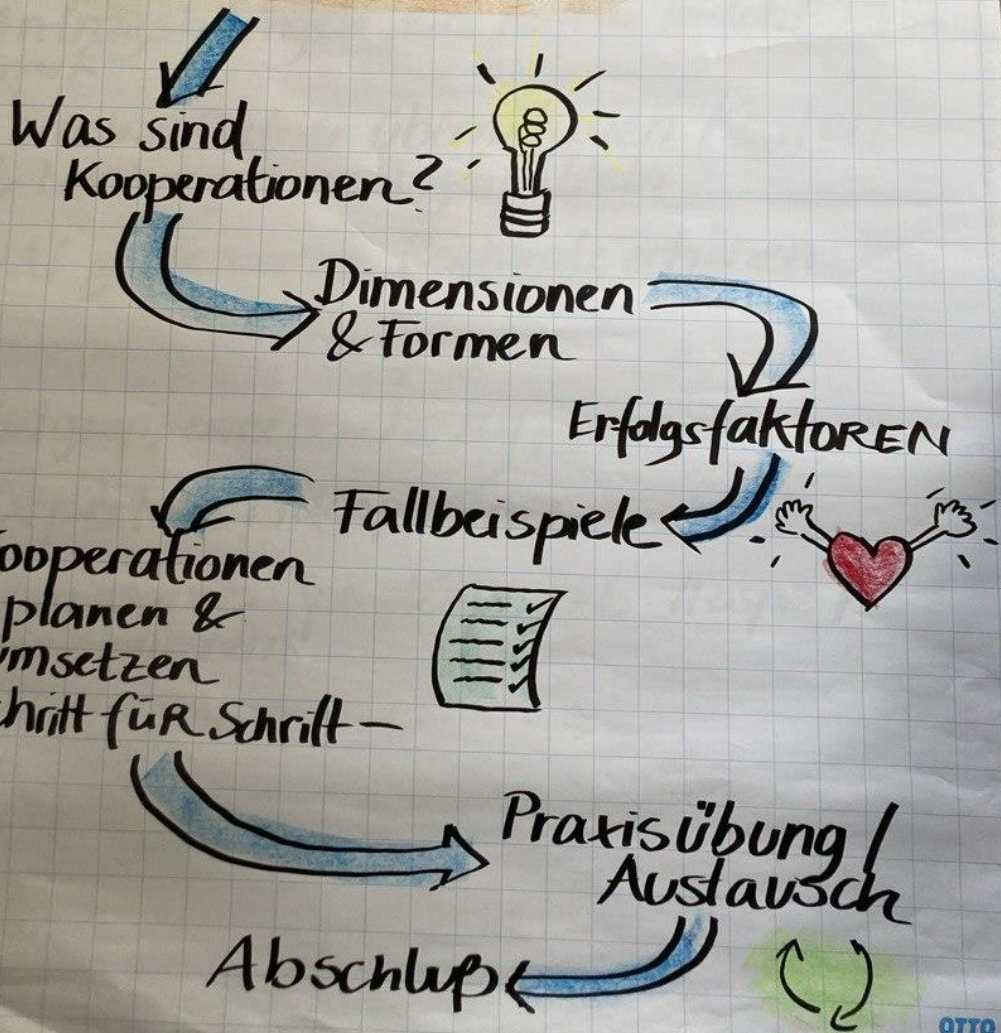 Was sind
Kooperationen?
Dimensionen
& Formen
ErfolgsfaktOREN
Fallbeispiele
ooperationen
planen &
msetzen
chritt füR Schritt –
Praxisübung /
Austausch
Abschluß
OTTO